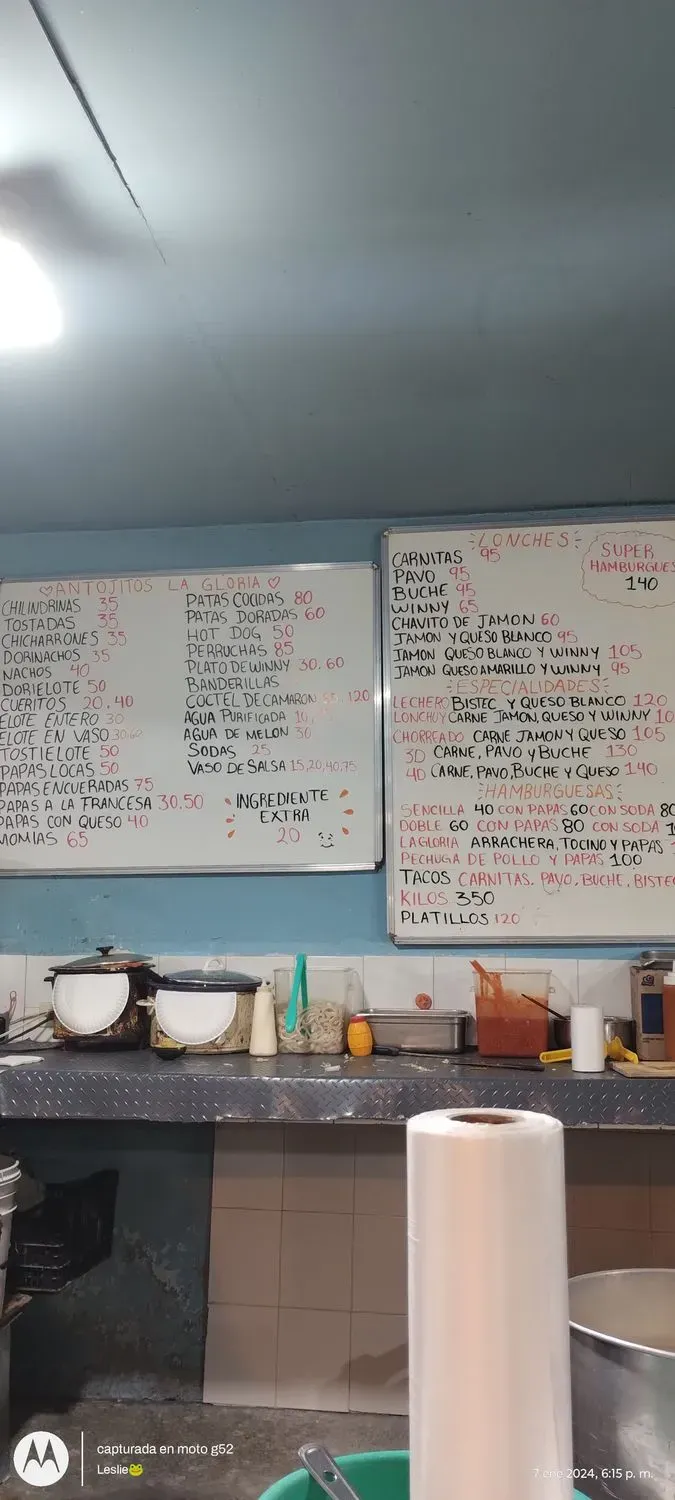 ♡ANTOJITOS LA GLORIA♡
CHILINDRINAS 35
TOSTADAS 35
CHICHARRONES 35
DORINACHOS 35
NACHOS 40
DORIELOTE 50
CUERITOS 20,40
ELOTE ENTERO 30
ELOTE EN VASO 30,60
TOSTIELOTE 50
PAPAS LOCAS 50
PAPAS ENCUERADAS 75
PAPAS A LA FRANCESA 30,50
PAPAS CON QUESO 40
MOMIAS 65
PATAS COCIDAS 80
PATAS DORADAS 60
HOT DOG 50
PERRUCHAS 85
PLATO DE WINNY 30,60
BANDERILLAS
COCTEL DE CAMARON 120
AGUA PURIFICADA
AGUA DE MELON 30
SODAS 25
VASO DE SALSA 15,20,40,75
INGREDIENTE
EXTRA
20
LONCHES
CARNITAS 95
PAVO 95
BUCHE 95
WINNY 65
CHAVITO DE JAMON 60
JAMON Y QUESO BLANCO 95
JAMON QUESO BLANCO Y WINNY 105
JAMON QUESO AMARILLO Y WINNY 95
SUPER
HAMBURGUES
140
ESPECIALIDADES
LECHERO BISTEC Y QUESO BLANCO 120
LONCHOY CARNE JAMON, QUESO Y WINNY 10
CHORREADO CARNE JAMON Y QUESO 105
3D CARNE, PAVO Y BUCHE 130
4D CARNE, PAVO, BUCHE Y QUESO 140
HAMBURGUESAS
SENCILLA 40 CON PAPAS 60 CON SODA 80
DOBLE 60 CON PAPAS 80 CON SODA 1
LA GLORIA ARRACHERA, TOCINO Y PAPAS
PECHUGA DE POLLO Y PAPAS 100
TACOS CARNITAS, PAVO, BUCHE, BISTEC
KILOS 350
PLATILLOS 120
capturada en moto g52
Leslie🐸
7 ene 2024, 6:15 p. m.